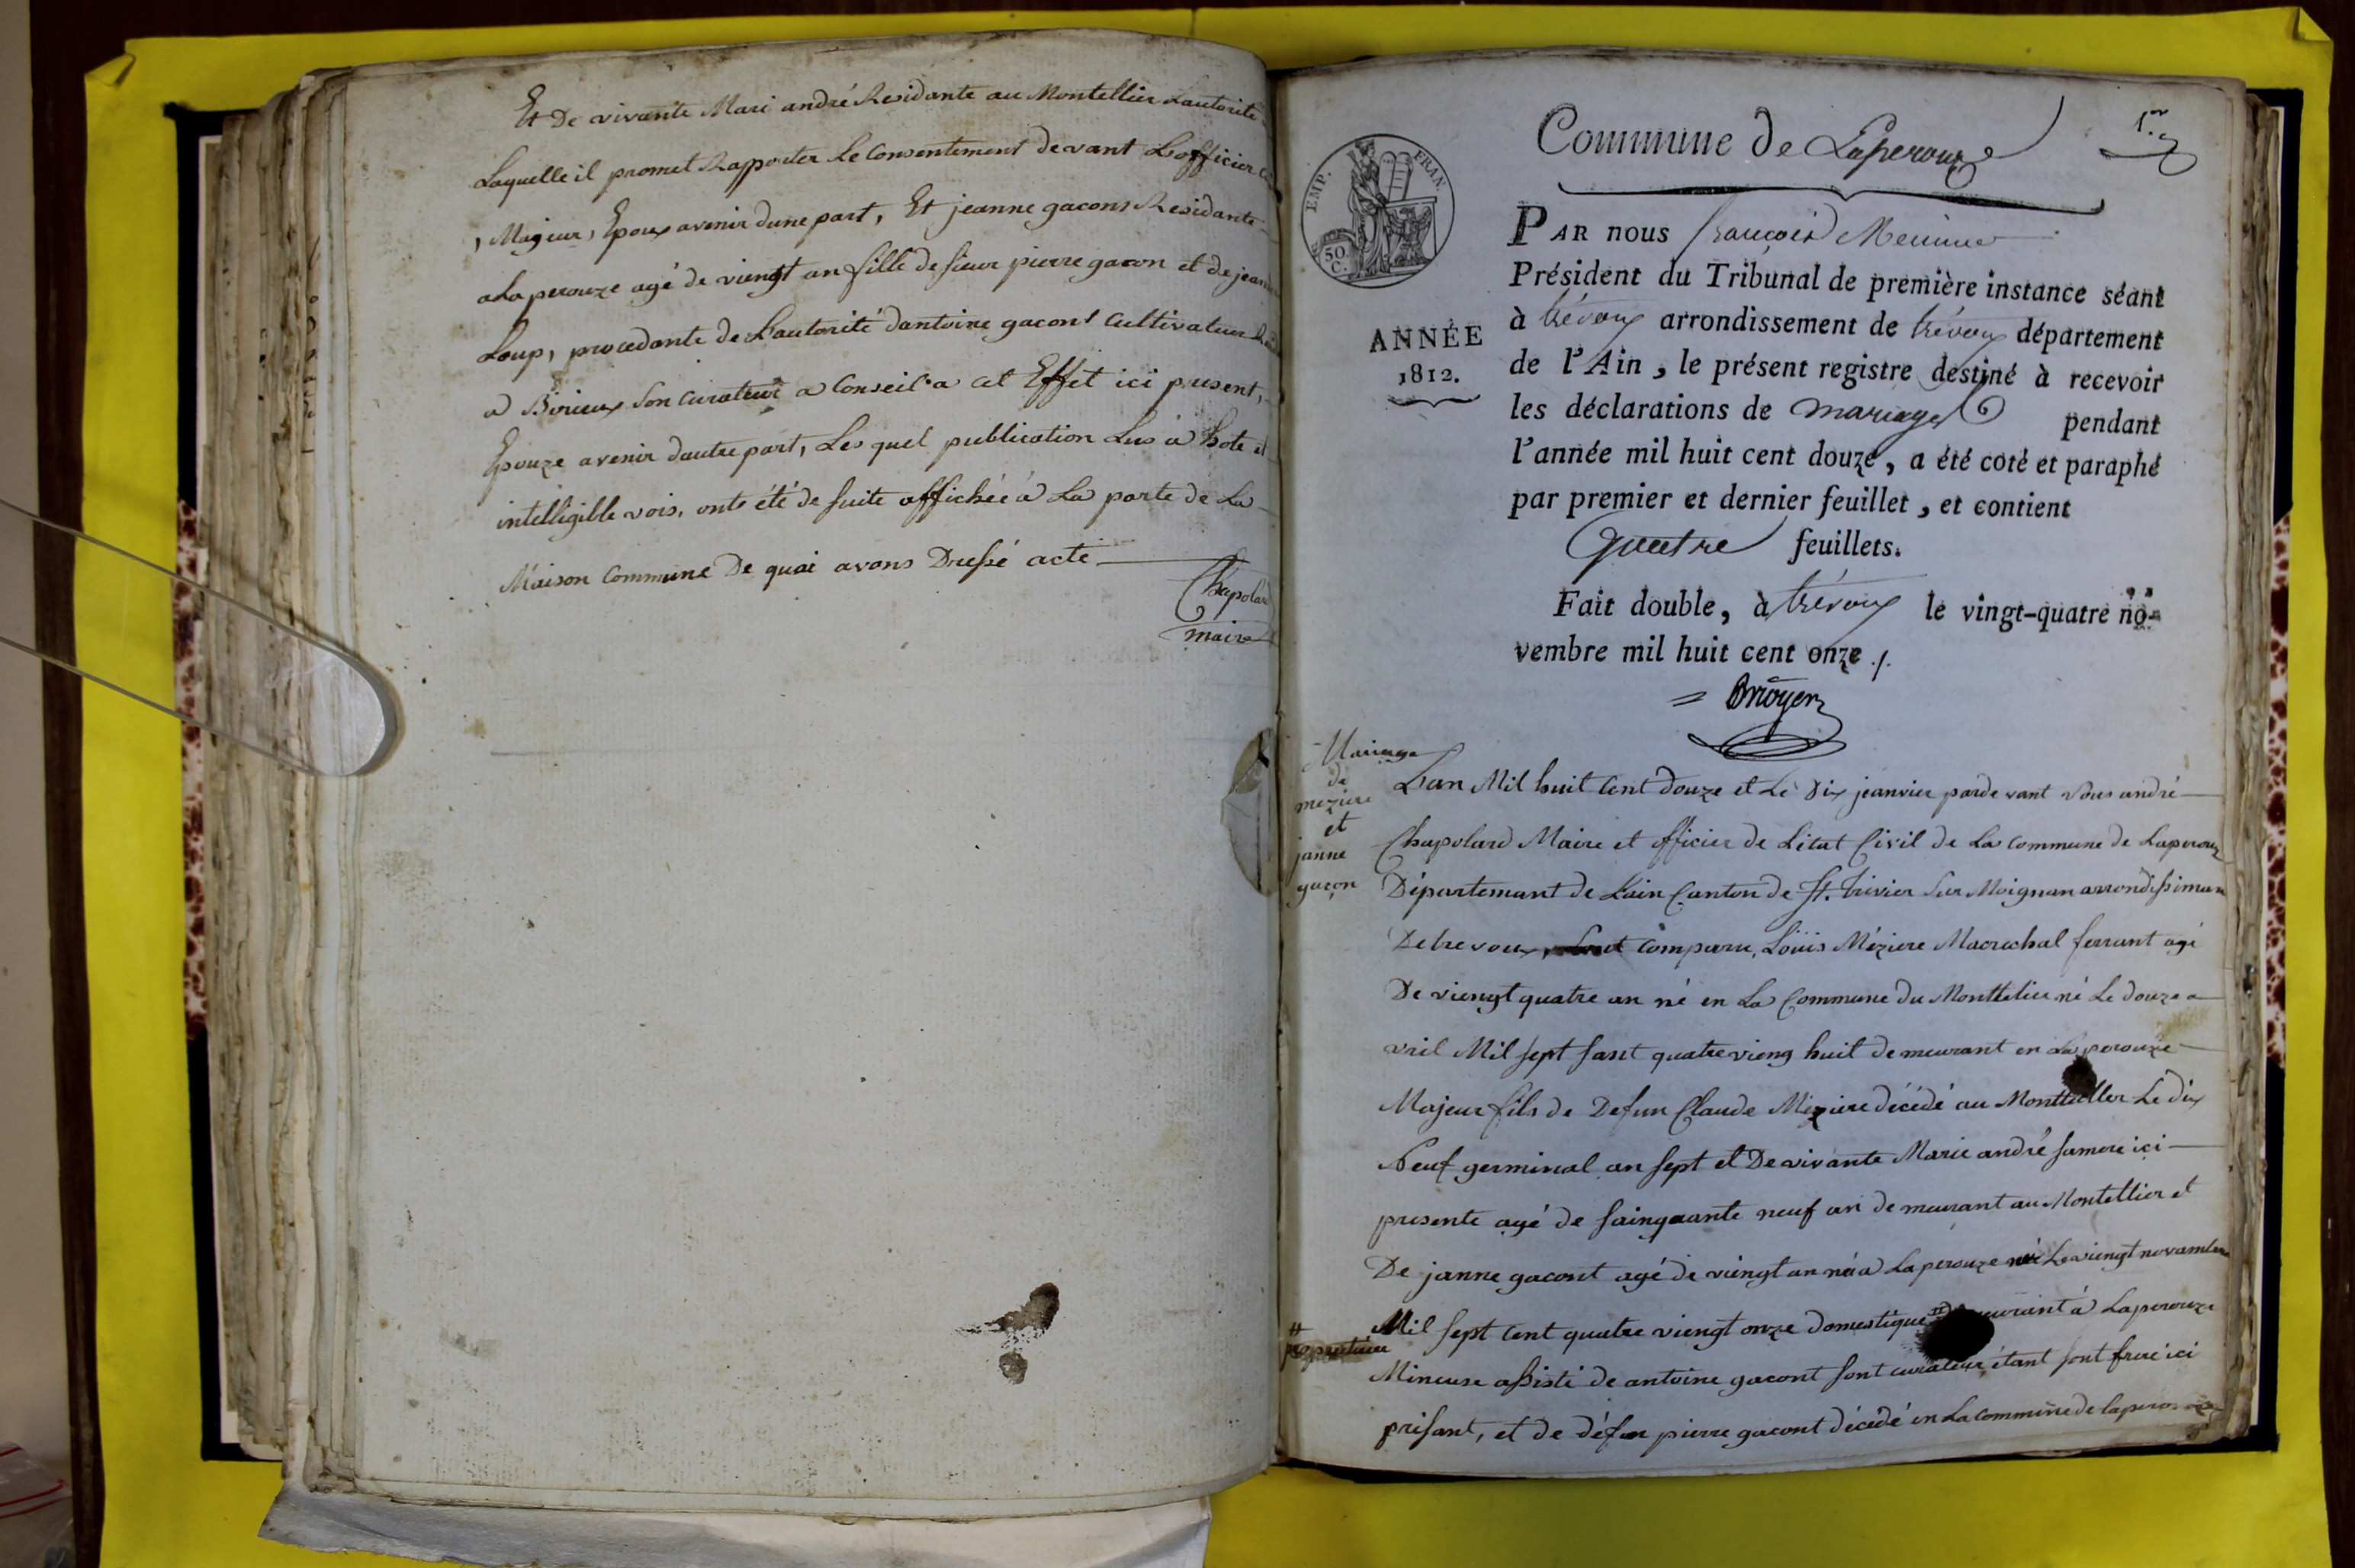 Et De vivante Mari andré Residante au Montellier Lautorite
Laquelle il promet Rapporter Le Consentement devant Lofficier
, Majeur, Epoux avenir dune part, Et jeanne gacons Residante
a Laperouze agé de viengt an fille de sieur pierre gacon et de jean
Loup, procedante de Lautorité dantoine gacont Cultivateur
a Birieux Son Curateur a Conseil a cet Effet ici present,
Epouze avenir dautre part, Les quel publication Lus à hote et
intelligible vois, onts été de suite affichée à La porte de La
Maison Commune De quai avons Dressé acte
Chapolard
maire
1.er
Commune de Laperouze
EMP. FRAN.
50 C.
ANNÉE
1812.
PAR nous françois
Président du Tribunal de première instance séant
à trévoux arrondissement de trévoux département
de l'Ain, le présent registre destiné à recevoir
les déclarations de mariages pendant
l'année mil huit cent douze, a été coté et paraphé
par premier et dernier feuillet, et contient
quatre feuillets.
Fait double, à trévoux le vingt-quatre no-
vembre mil huit cent onze ./.
Mariage
de
meziere
et
janne
gacon
Lan Mil huit Cent Douze et Le Dix jeanvier parde vant Nous andré
Chapolard Maire et officier de Létat Civil de La Commune de Laperouz
Départemant de Lain Canton de St. trivier Sur Moignan arrondissiman
De trevoux, Comparu, Loüis Méziere Marechal ferrant agé
De viengt quatre an né en La Commune du Monttelier né Le douze a
vril Mil sept sant quatre vieng huit demeurant en Laperouze
Majeur fils de Defun Claude Meziere décédé au Le dix
Neuf germinal an sept et De vivante Marie andré samere ici
presente agé de sainquante neuf an demeurant au Montellier et
De janne gacont agé de viengt an néé a Laperouze Le viengt novambre
Mil sept Cent quatre viengt onze domestique # à Laperouze
# propriétaire
Mineuse assisté de antoine gacont sont curateur étant sont frere ici
présant, et de défun pierre gacont décédé en La Commune de laperouze